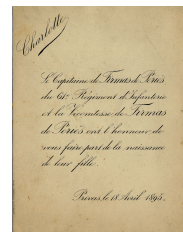 Charlotte
Le Capitaine de Firmas de Périès
du 61e Régiment d'Infanterie
et la Vicomtesse de Firmas
de Périès ont l'honneur de
vous faire part de la naissance
de leur fille.
Privas, le 18 Avril 1895.